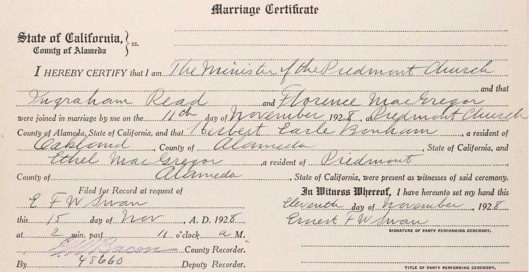 Marriage Certificate
State of California,
County of Alameda } ss.
I HEREBY CERTIFY that I am The Minister of the Piedmont Church
and that
Ingraham Read and Florence MacGregor
were joined in marriage by me on the 11th day of November, 1928, Piedmont Church
County of Alameda, State of California, and that Herbert Earle Bonham, a resident of
Oakland, County of Alameda, State of California, and
Ethel MacGregor, a resident of Piedmont
County of Alameda, State of California, were present as witnesses of said ceremony.
Filed for Record at request of
E F W Swan
this 15 day of Nov, A. D. 1928
at 2 min. past 11 o'clock a M.
County Recorder.
By 48660 Deputy Recorder.
In Witness Whereof, I have hereunto set my hand this
eleventh day of November, 1928
Ernest F W Swan
SIGNATURE OF PARTY PERFORMING CEREMONY.
TITLE OF PARTY PERFORMING CEREMONY.